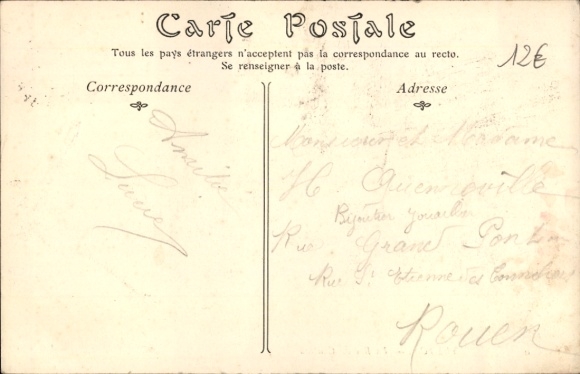 Carte Postale
Tous les pays étrangers n'acceptent pas la correspondance au recto.
Se renseigner à la poste.
12€
Correspondance
Adresse
Amitié
Monsieur et Madame
H.
Bijoutier
Rue Grand Pont
Rue St Etienne des
Rouen